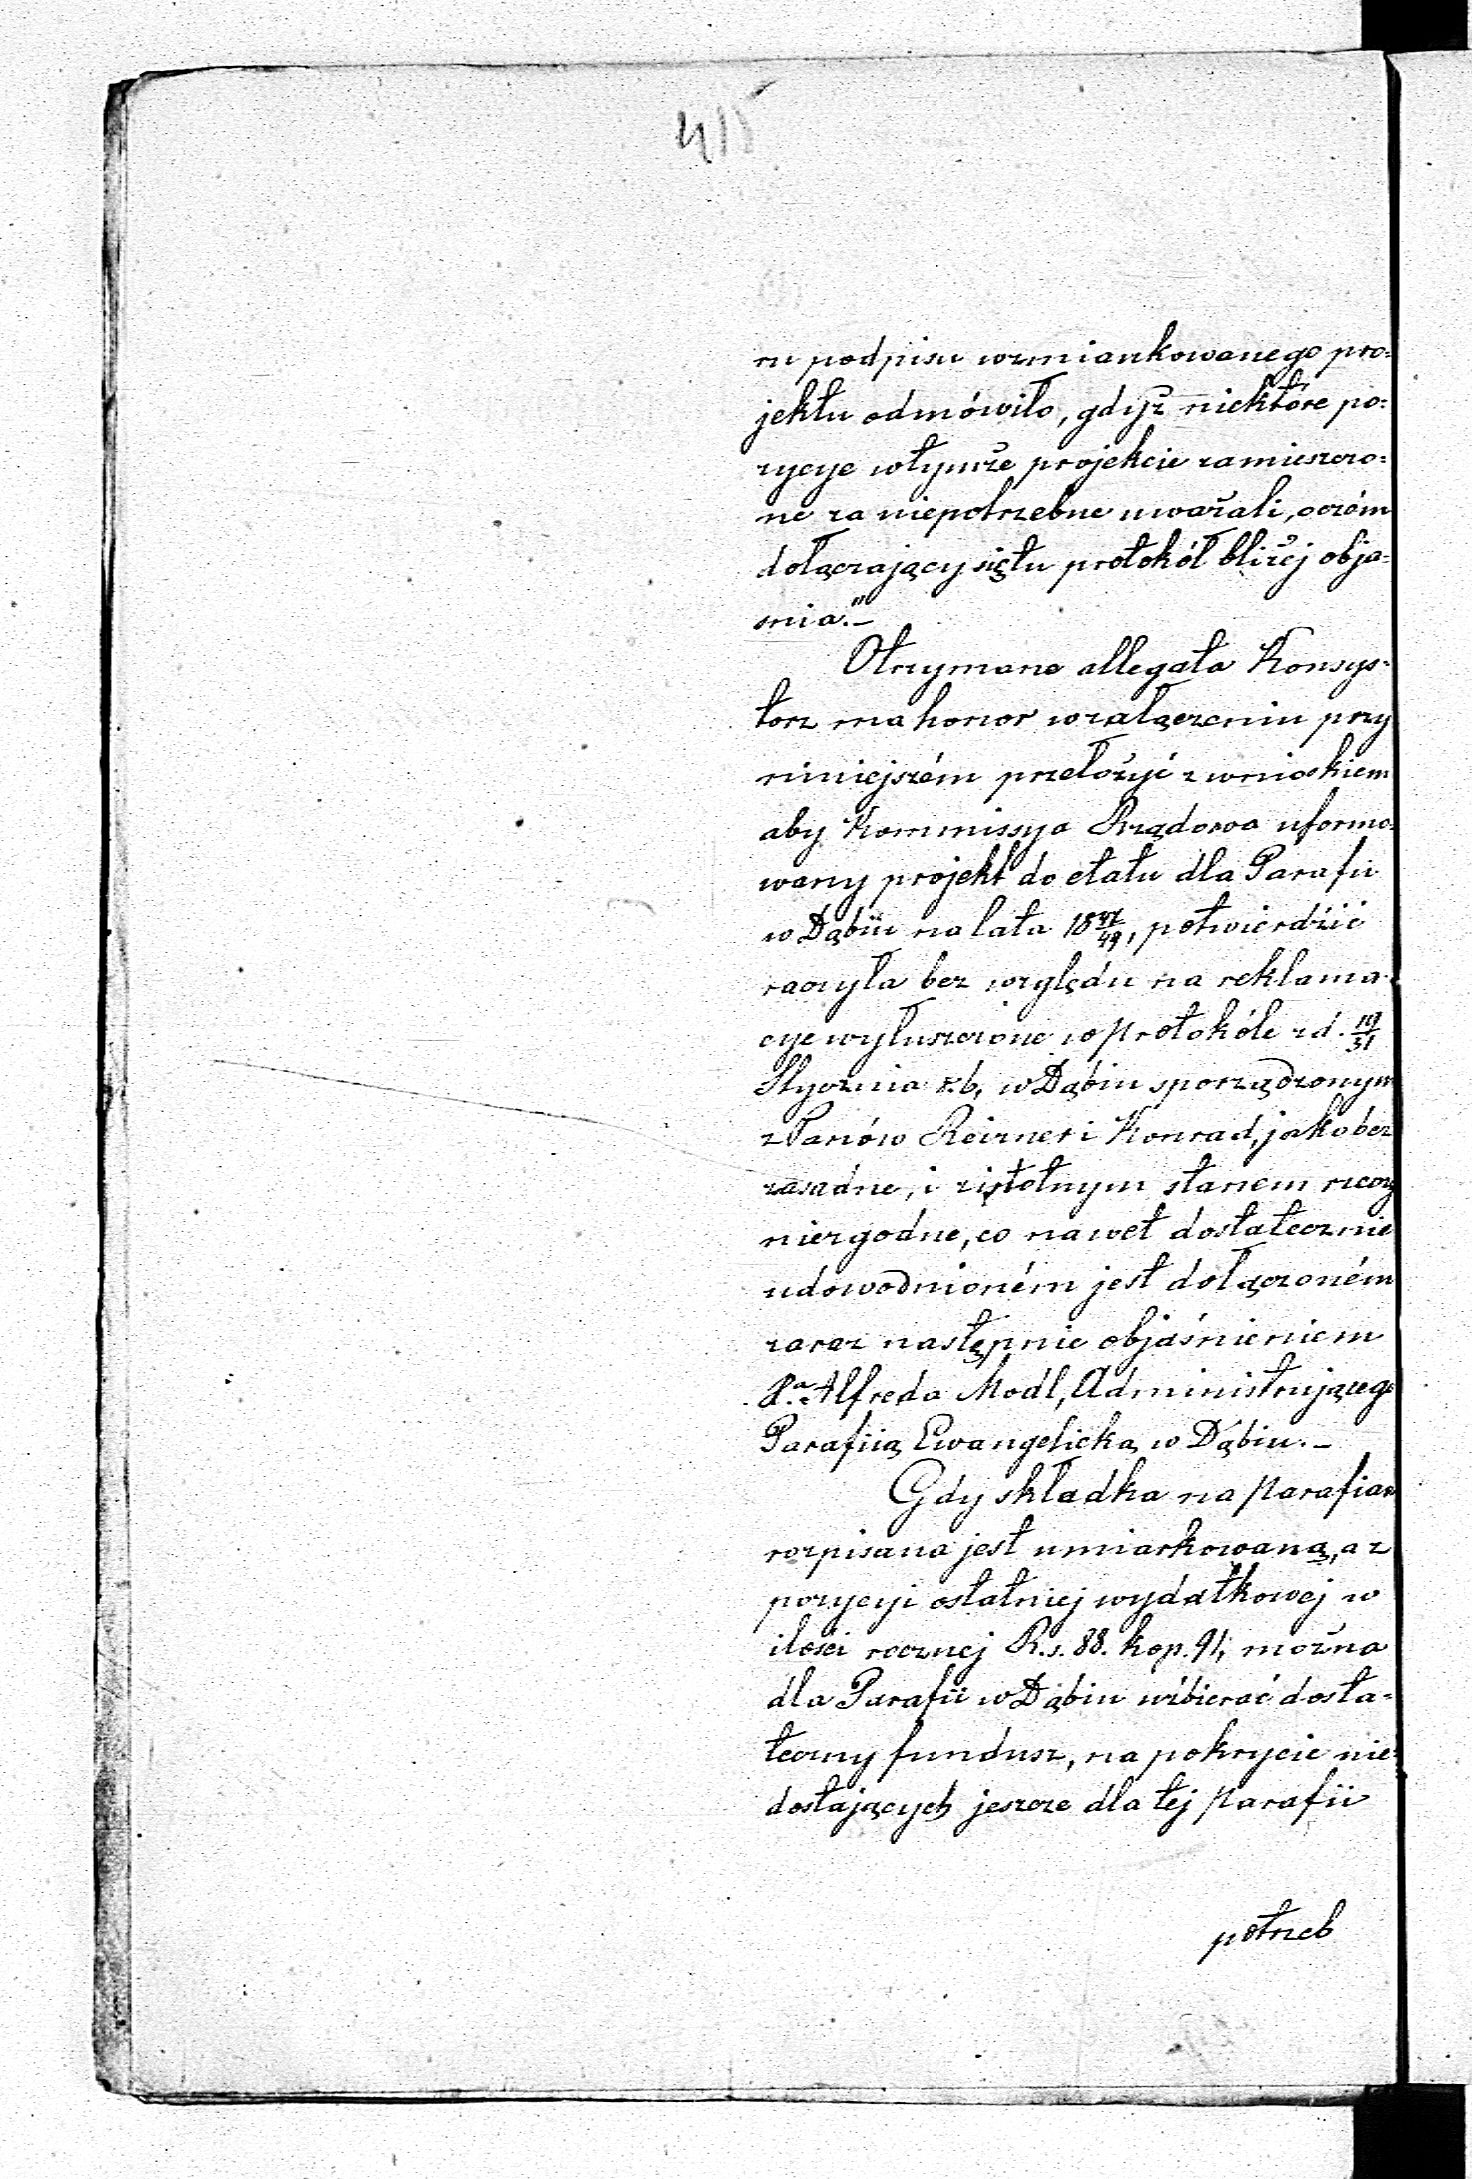 415
ru podpisu wzmiankowanego pro=
jektu odmówiło, gdyż niektóre po=
zycye wtymże projekcie zamieszczo=
ne za niepotrzebne uważali, oczém
dołączający siętu protokół bliżej obja=
snia."–
Otrzymane allegata Konsys=
torz ma honor wzałączeniu przy
niniejszém przełożyć z wnioskiem
aby Kommissya Rządowa uformo=
wany projekt do etatu dla Parafii
w Dąbiu na lata 18 47/49, potwierdzić
raczyła bez względu na reklama=
cye wyłuszczone w protokóle zd. 19/31
Stycznia r.b. w Dąbiu sporządzonym
z Panów Reizner i Konrad, jako bez
zasadne, i zistotnym stanem rzeczy
niezgodne, co nawet dostatecznie
udowodnioném jest dołączoném
zaraz następnie objaśnieniem
Xa. Alfreda Modl, Administrującego
Parafiią Ewangelicką w Dąbiu.–
Gdy składka na parafian
rozpisana jest umiarkowaną, a z
pozycyi ostatniej wydatkowej w
ilości rocznej R.s. 88. kop. 91, można
dla Parafii w Dąbiu wzbierać dosta=
teczny fundusz, na pokrycie nie=
dostających jeszcze dla tej parafii
potrzeb